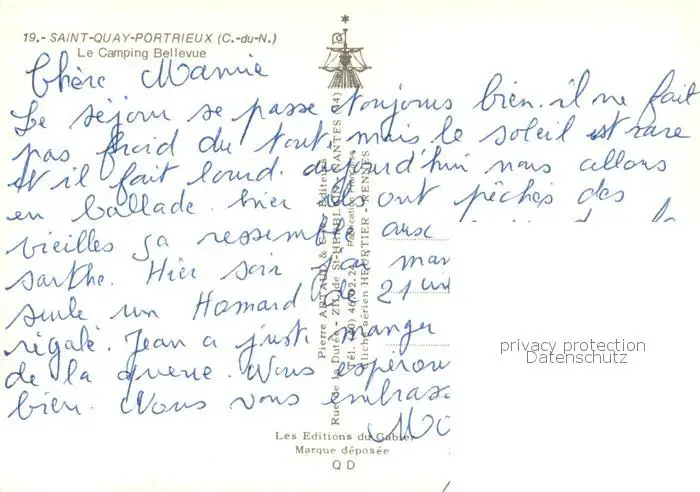 19.- SAINT-QUAY-PORTRIEUX (C.-du-N.)
Le Camping Bellevue
Chère Mamie
Le séjour se passe toujours bien. il ne fait
pas froid du tout mais le soleil est rare
et il fait lourd. aujourd'hui nous allons
en ballade. hier ils ont pêchés des
vieilles ça ressemble aux
sarthe. Hier soir j'ai man
seule un Homard de 21
régalé. Jean a juste manger
de la queue. Nous espéron
bien. Nous vous embrass
Mo
Pierre ARTAUD & Editeurs
Rue de la Dutée - Z.I. de St-HERBLAIN NANTES (44)
Tél. (40) 46.02.24 Fabrication Française
cliché aérien HEURTIER - RENNES
Les Editions du Gabier
Marque déposée
QD
privacy protection
Datenschutz